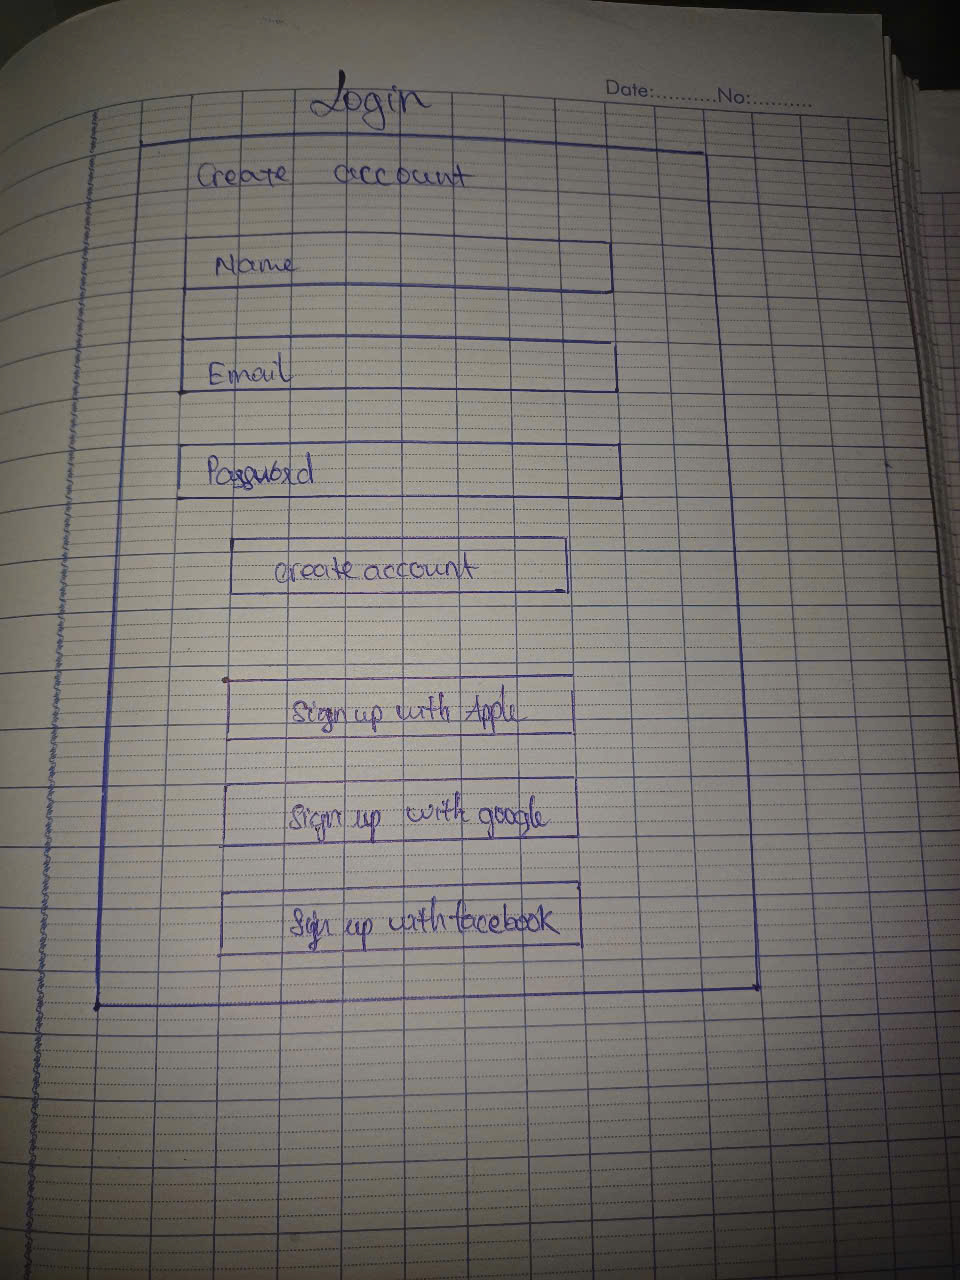 Date:..........No:..........
Login
Create account
Name
Email
Password
create account
Sign up with Apple
Sign up with google
Sign up with facebook